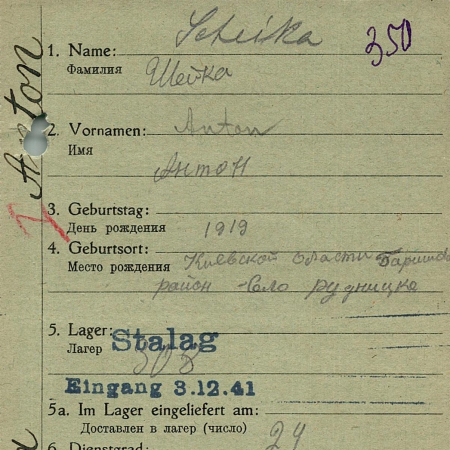 Scheika
350
1. Name:
Фамилия
Шейка
Anton
2. Vornamen:
Anton
Имя
Антон
3. Geburtstag:
День рождения
1919
4. Geburtsort:
Место рождения
Киевской области
район село рудницке
5. Lager:
Лагер
Stalag
Eingang 3.12.41
5a. Im Lager eingeliefert am:
Доставлен в лагер (число)
24
6. Dienstgrad: